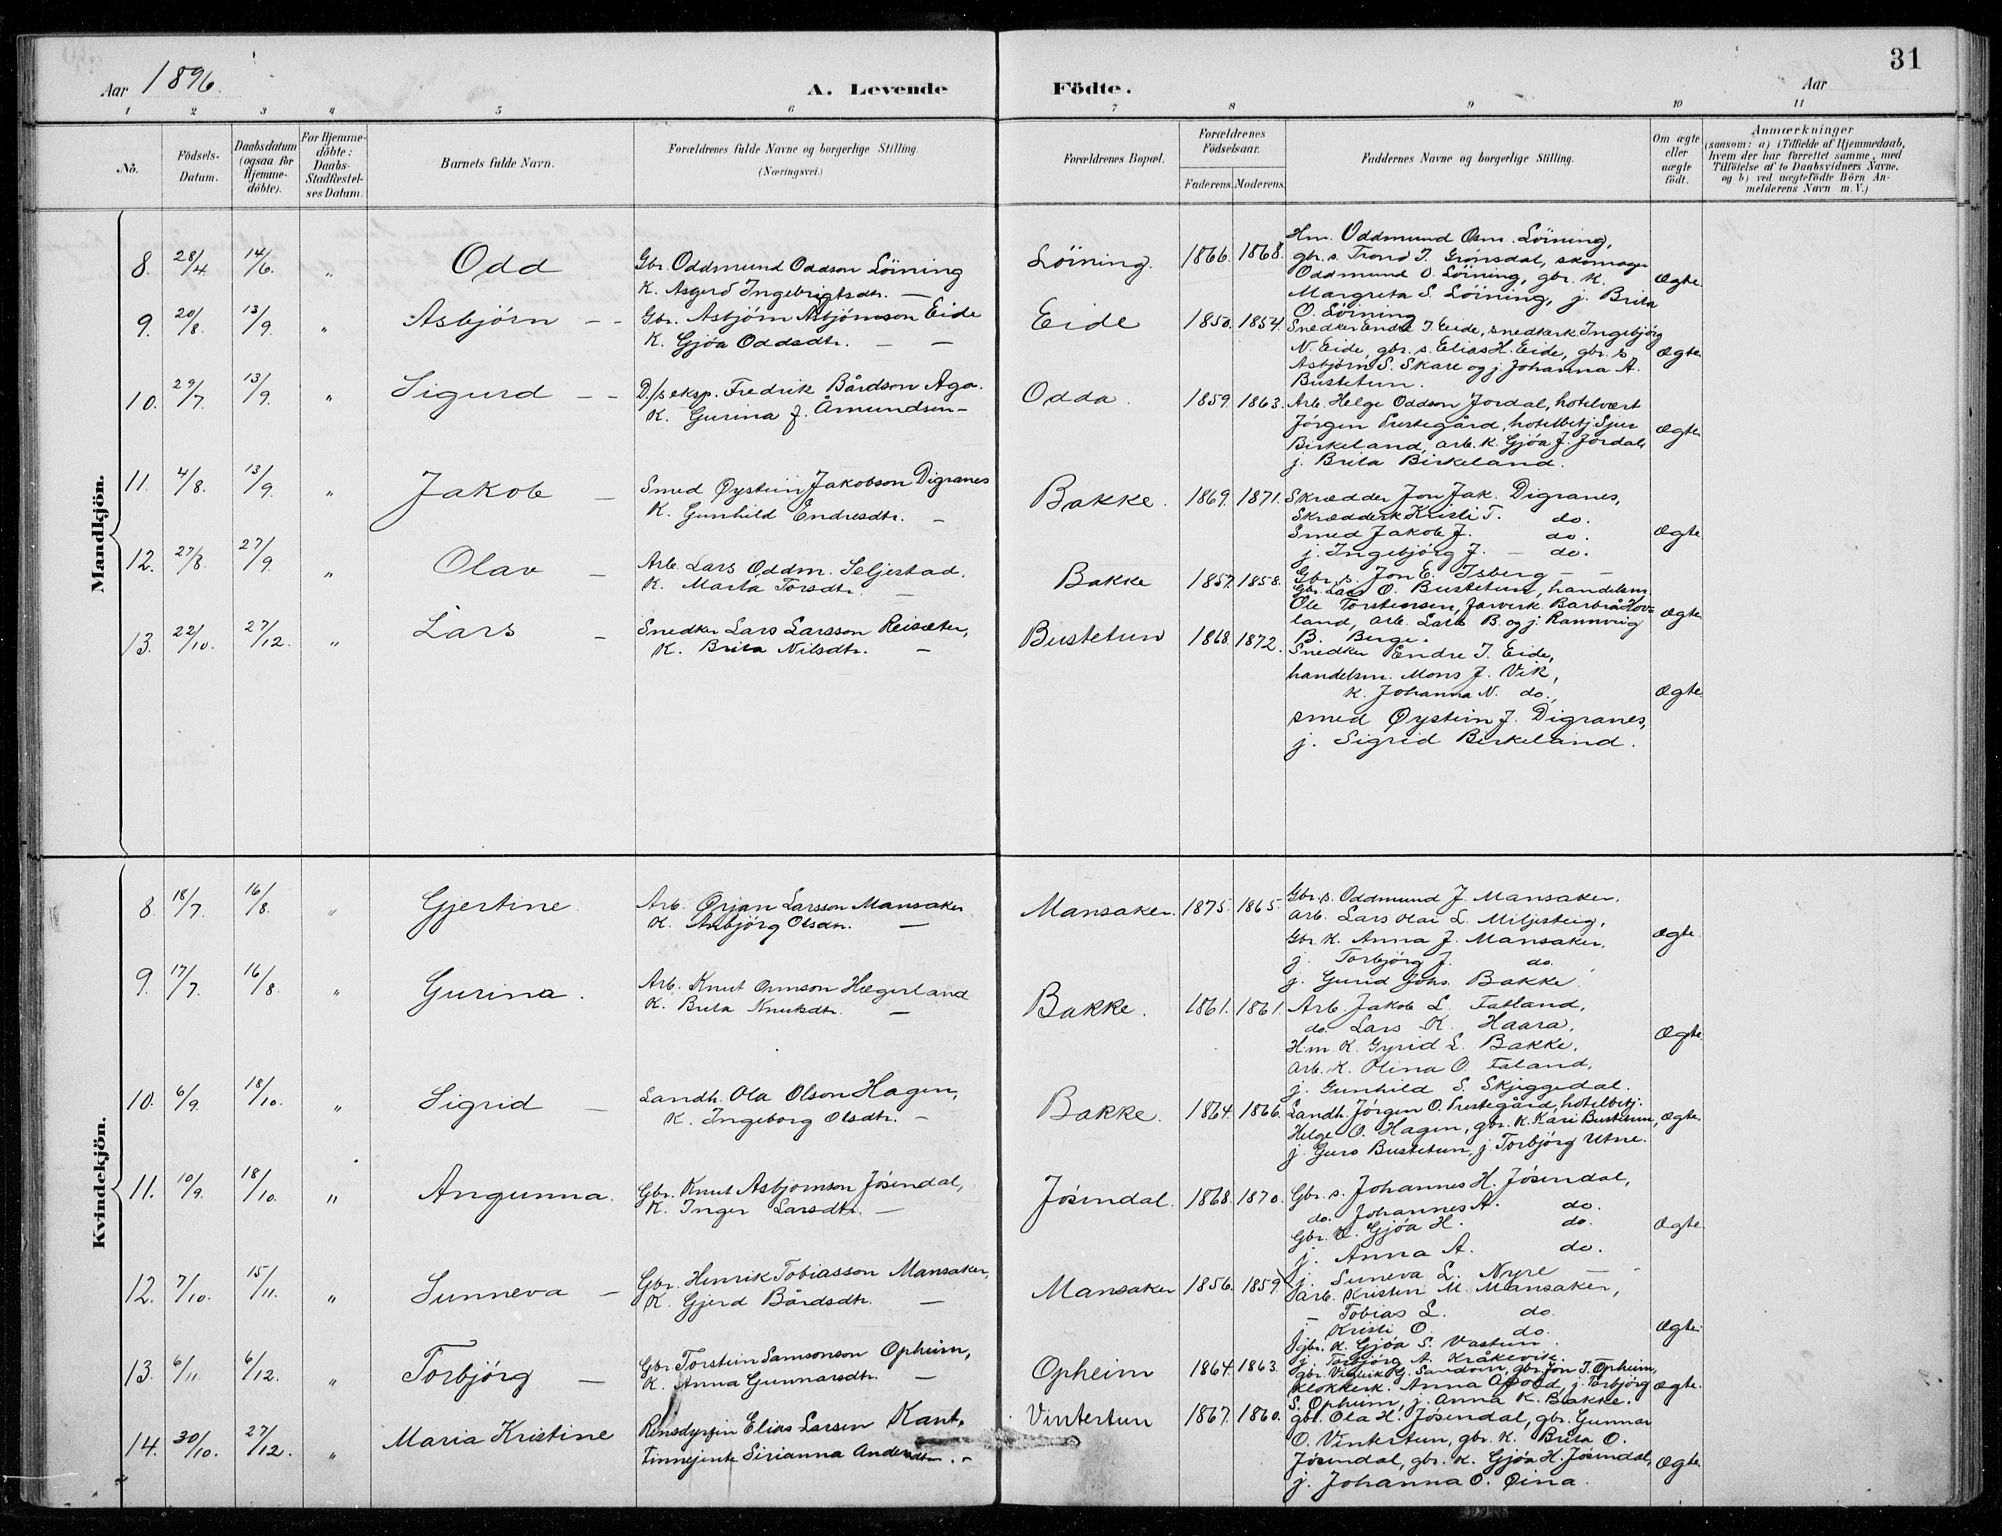 31
Aar 1896.
A. Levende Födte.
Aar
1 2 3 4 5 6 7 8 9 10 11
No.
Födsels-Datum.
Daabsdatum (ogsaa for Hjemmedöbte).
For Hjemmedöbte: Daabs-Stadfæstelses Datum.
Barnets fulde Navn.
Forældrenes fulde Navne og borgerlige Stilling. (Næringsvei.)
Forældrenes Bopæl.
Forældrenes Födselsaar.
Faderens. Moderens.
Faddernes Navne og borgerlige Stilling.
Om ægte eller uægte födt.
Anmærkninger
(saasom: a) i Tilfælde af Hjemmedaab,
hvem der har forrettet samme, med
Tilföielse af to Daabsvidners Navne.
og b) ved uægtefödte Börn Anmelderens Navn m. V.)
Mandkjön.
8. 28/4. 14/6. " Odd
Gbr. Oddmund Oddson Löining
K. Asgerd Ingebrigtsdtr. —
Löining. 1866. 1868.
Hm. Oddmund Osm. Löining,
gbr. s. Trond T. Grönsdal, skomager
Oddmund O. Löining, gbr. K.
Margreta S. Löining, j. Brita
O. Löining
Ægte.
9. 20/8. 13/9. " Asbjörn — —
Gbr. Asbjörn Asbjörnson Eide
K. Gjöa Oddsdtr. — —
Eide 1850. 1854.
Snedker Endre I. Eide, snedkerk Ingebjörg
N. Eide, gbr. s. Elias H. Eide, gbr. s
Asbjörn S. Skare og j. Johanna A.
Bustetun.
Ægte.
10. 29/7. 13/9. " Sigurd — —
D/s eksp. Fredrik Bårdson Aga.
K. Gurina J. Åmundsen —
Odda. 1859. 1863.
Arb. Helge Oddson Jordal, hotelvært
Jörgen Prestegård, hotelbetj. Sjur
Birkeland, arb. K. Gjöa J. Jordal
j. Brita Birkeland.
Ægte.
11. 4/8. 13/9. " Jakob —
Smed Øystein Jakobson Digranes
K. Gunhild Endresdtr. —
Bakke. 1869. 1871.
Skrædder Jon Jak. Digranes,
Skrædderk Kristi T. do.
Smed Jakob J. do.
j. Ingebjörg J. — do.
Gbr. s. Jon E. Isberg — —
Ægte
12. 27/8. 27/9. " Olav —
Arb. Lars Oddm. Seljestad,
K. Marta Torsdtr. —
Bakke 1857. 1858.
Gbr. Lars O. Bustetun, handelsm
Ole Torstensen, farverk. Barbrå Hov=
land, arb. Lars B. og j. Rannveig
B. Berge.
Ægte.
13. 22/10. 27/12. " Lars —
Snedker Lars Larsson Reisæter,
K. Brita Nilsdtr. —
Bustetun 1868. 1872.
Snedker Endre I. Eide,
handelsm. Mons J. Vik,
K. Johanna N. do.,
smed Øystein J. Digranes,
j. Sigrid Birkeland.
Ægte.
Kvindekjön.
8. 18/7. 16/8. " Gjertine.
Arb. Örjan Larsson Mansaker
K. Asbjörg Olsdtr. —
Mansaker. 1875. 1865.
Gbr. s. Oddmund J. Mansaker,
arb. Lars Olai L. Miljesteig,
Gbr. K. Anna J. Mansaker,
j. Torbjörg J. do.
j. Gurid Johs. Bakke.
Ægte.
9. 17/7. 16/8. " Gurina.
Arb. Knut Ormson Hægerland
K. Brita Knutsdtr. —
Bakke. 1861. 1861.
Arb. Jakob L. Fatland,
do. Lars K. Haara,
Hm. K. Gyrid L. Bakke,
Arb. K. Olina O. Fatland,
j. Gunhild S. Skjeggedal.
Ægte
10. 6/9. 18/10. " Sigrid —
Landh. Ola Olson Hagen,
K. Ingeborg Olsdtr. —
Bakke. 1864. 1866.
Landh. Jörgen O. Prestegård, hotelbetj.
Helge O. Hagen, gbr. K. Kari Bustetun,
j. Guro Bustetun, j. Torbjörg Utne.
Ægte.
11. 10/9. 18/10. " Angunna.
Gbr. Knut Asbjørnson Jösendal,
K. Inger Larsdtr. —
Jösendal. 1868. 1870.
Gbr. s. Johannes H. Jösendal,
do. Johannes A. do.
Gbr. K. Gjöa H. do.
j. Anna A. do.
j. Suneva L. Nyre —
Ægte.
12. 7/10. 15/11. " Sunneva —
Gbr. Henrik Tobiasson Mansaker,
K. Gjerd Bårdsdtr. —
Mansaker 1856. 1859.
arb. Kristen M. Mansaker,
— Tobias L. do.
j. Kristi O. do.
gbr. K. Gjöa S. Vastun.
j. Torbjörg A. Kråkevik.
Ægte.
13. 6/11. 6/12. " Torbjörg —
Gbr. Torstein Samsonson Opheim,
K. Anna Gunnarsdtr. —
Opheim 1864. 1863.
gbr. G. Sandven, gbr. Jon T. Opheim,
Klokkerk. Anna Apold, j. Torbjörg
S. Opheim, j. Anna K. Bakke.
Ægte.
14. 30/10. 27/12. " Maria Kristine
Elias Larsen Kant,
Finnejente Sirianna Andersdtr. —
Vintertun 1867. 1860.
gbr. Ola H. Jösendal, gbr. Gunnar
O. Vintertun, gbr. K. Brita O.
Jösendal, gbr. K. Gjöa H. Jösendal,
j. Johanna O. Øina.
Ægte.